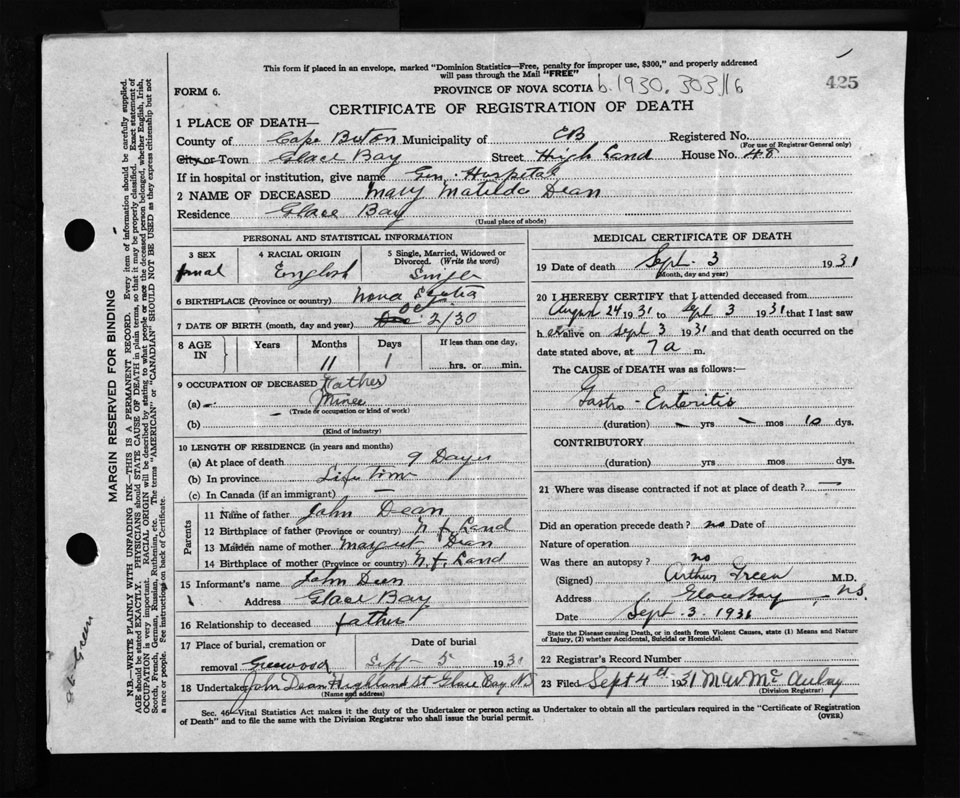 This form if placed in an envelope, marked "Dominion Statistics—Free, penalty for improper use, $300," and properly addressed
will pass through the Mail "FREE"
425
FORM 6.
PROVINCE OF NOVA SCOTIA b.1930.303116
CERTIFICATE OF REGISTRATION OF DEATH
1 PLACE OF DEATH—
County of Cape Breton Municipality of CB Registered No.
(For use of Registrar General only)
City or Town Glace Bay Street High Land House No. 48
If in hospital or institution, give name Gen. Hospital
2 NAME OF DECEASED Mary Matilda Dean
Residence Glace Bay
(Usual place of abode)
PERSONAL AND STATISTICAL INFORMATION
3 SEX
4 RACIAL ORIGIN English
5 Single, Married, Widowed or Divorced. (Write the word) Single
6 BIRTHPLACE (Province or country) Nova Scotia
7 DATE OF BIRTH (month, day and year) Oct 2/30
8 AGE IN Years Months Days If less than one day,
11 1 hrs. or min.
9 OCCUPATION OF DECEASED Father
(a) Miner
(Trade or occupation or kind of work)
(b)
(Kind of industry)
10 LENGTH OF RESIDENCE (in years and months)
(a) At place of death 9 Days
(b) In province Life time
(c) In Canada (if an immigrant) —
Parents
11 Name of father John Dean
12 Birthplace of father (Province or country) N.f. Land
13 Maiden name of mother Margret Dean
14 Birthplace of mother (Province or country) N.f. Land
15 Informant's name John Dean
Address Glace Bay
16 Relationship to deceased father
17 Place of burial, cremation or removal Greenwood
Date of burial Sept 5 1931
18 Undertaker John Dean Highland St Glace Bay NS
(Name and address)
MEDICAL CERTIFICATE OF DEATH
19 Date of death Sept. 3 1931
(Month, day and year)
20 I HEREBY CERTIFY that I attended deceased from
August 24 1931 to Sept 3 1931 that I last saw
her alive on Sept 3 1931 and that death occurred on
date stated above, at 7 a m.
The CAUSE of DEATH was as follows:—
Gastro-Enteritis
(duration) — yrs — mos 10 dys.
CONTRIBUTORY
(duration) yrs. mos. dys.
21 Where was disease contracted if not at place of death? —
Did an operation precede death? no Date of
Nature of operation
Was there an autopsy? no
(Signed) Arthur Green M.D.
Address Glace Bay, N.S.
Date Sept. 3. 1931
State the Disease causing Death, or in death from Violent Causes, state (1) Means and Nature of Injury, (2) whether Accidental, Suicidal or Homicidal.
22 Registrar's Record Number
23 Filed Sept 4th 1931
(Division Registrar)
Sec. 46—Vital Statistics Act makes it the duty of the Undertaker or person acting as Undertaker to obtain all the particulars required in the "Certificate of Registration
of Death" and to file the same with the Division Registrar who shall issue the burial permit.
(OVER)
MARGIN RESERVED FOR BINDING
N.B.—WRITE PLAINLY WITH UNFADING INK—THIS IS A PERMANENT RECORD. Every item of information should be carefully supplied.
AGE should be stated EXACTLY. PHYSICIANS should STATE CAUSE OF DEATH in plain terms, so that it may be properly classified. Exact statement of
OCCUPATION is very important. RACIAL ORIGIN will be described by stating to what people or race the deceased person belonged, whether English, Irish,
Scotch, French, German, Russian, Ruthenian, etc. The terms "AMERICAN" or "CANADIAN" SHOULD NOT BE USED as they express citizenship but not
a race or people. See instructions on back of Certificate.
Green